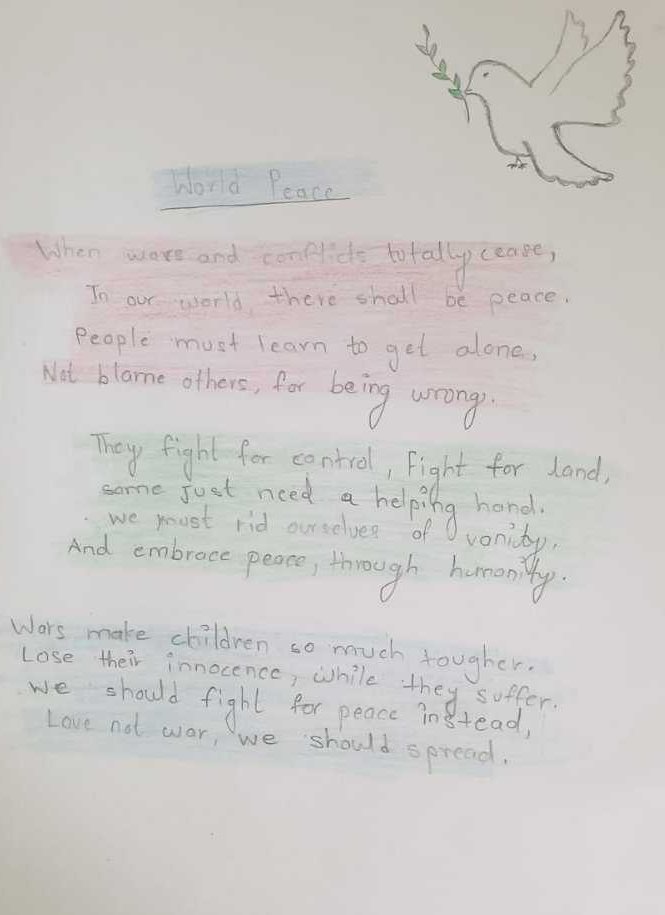 World Peace
When wars and conflicts totally cease,
In our world, there shall be peace.
People must learn to get alone,
Not blame others, for being wrong.
They fight for control, fight for land,
some just need a helping hand.
we must rid ourselves of vanity,
And embrace peace, through humanity.
Wars make children so much tougher.
Lose their innocence, while they suffer.
we should fight for peace instead,
Love not war, we should spread.